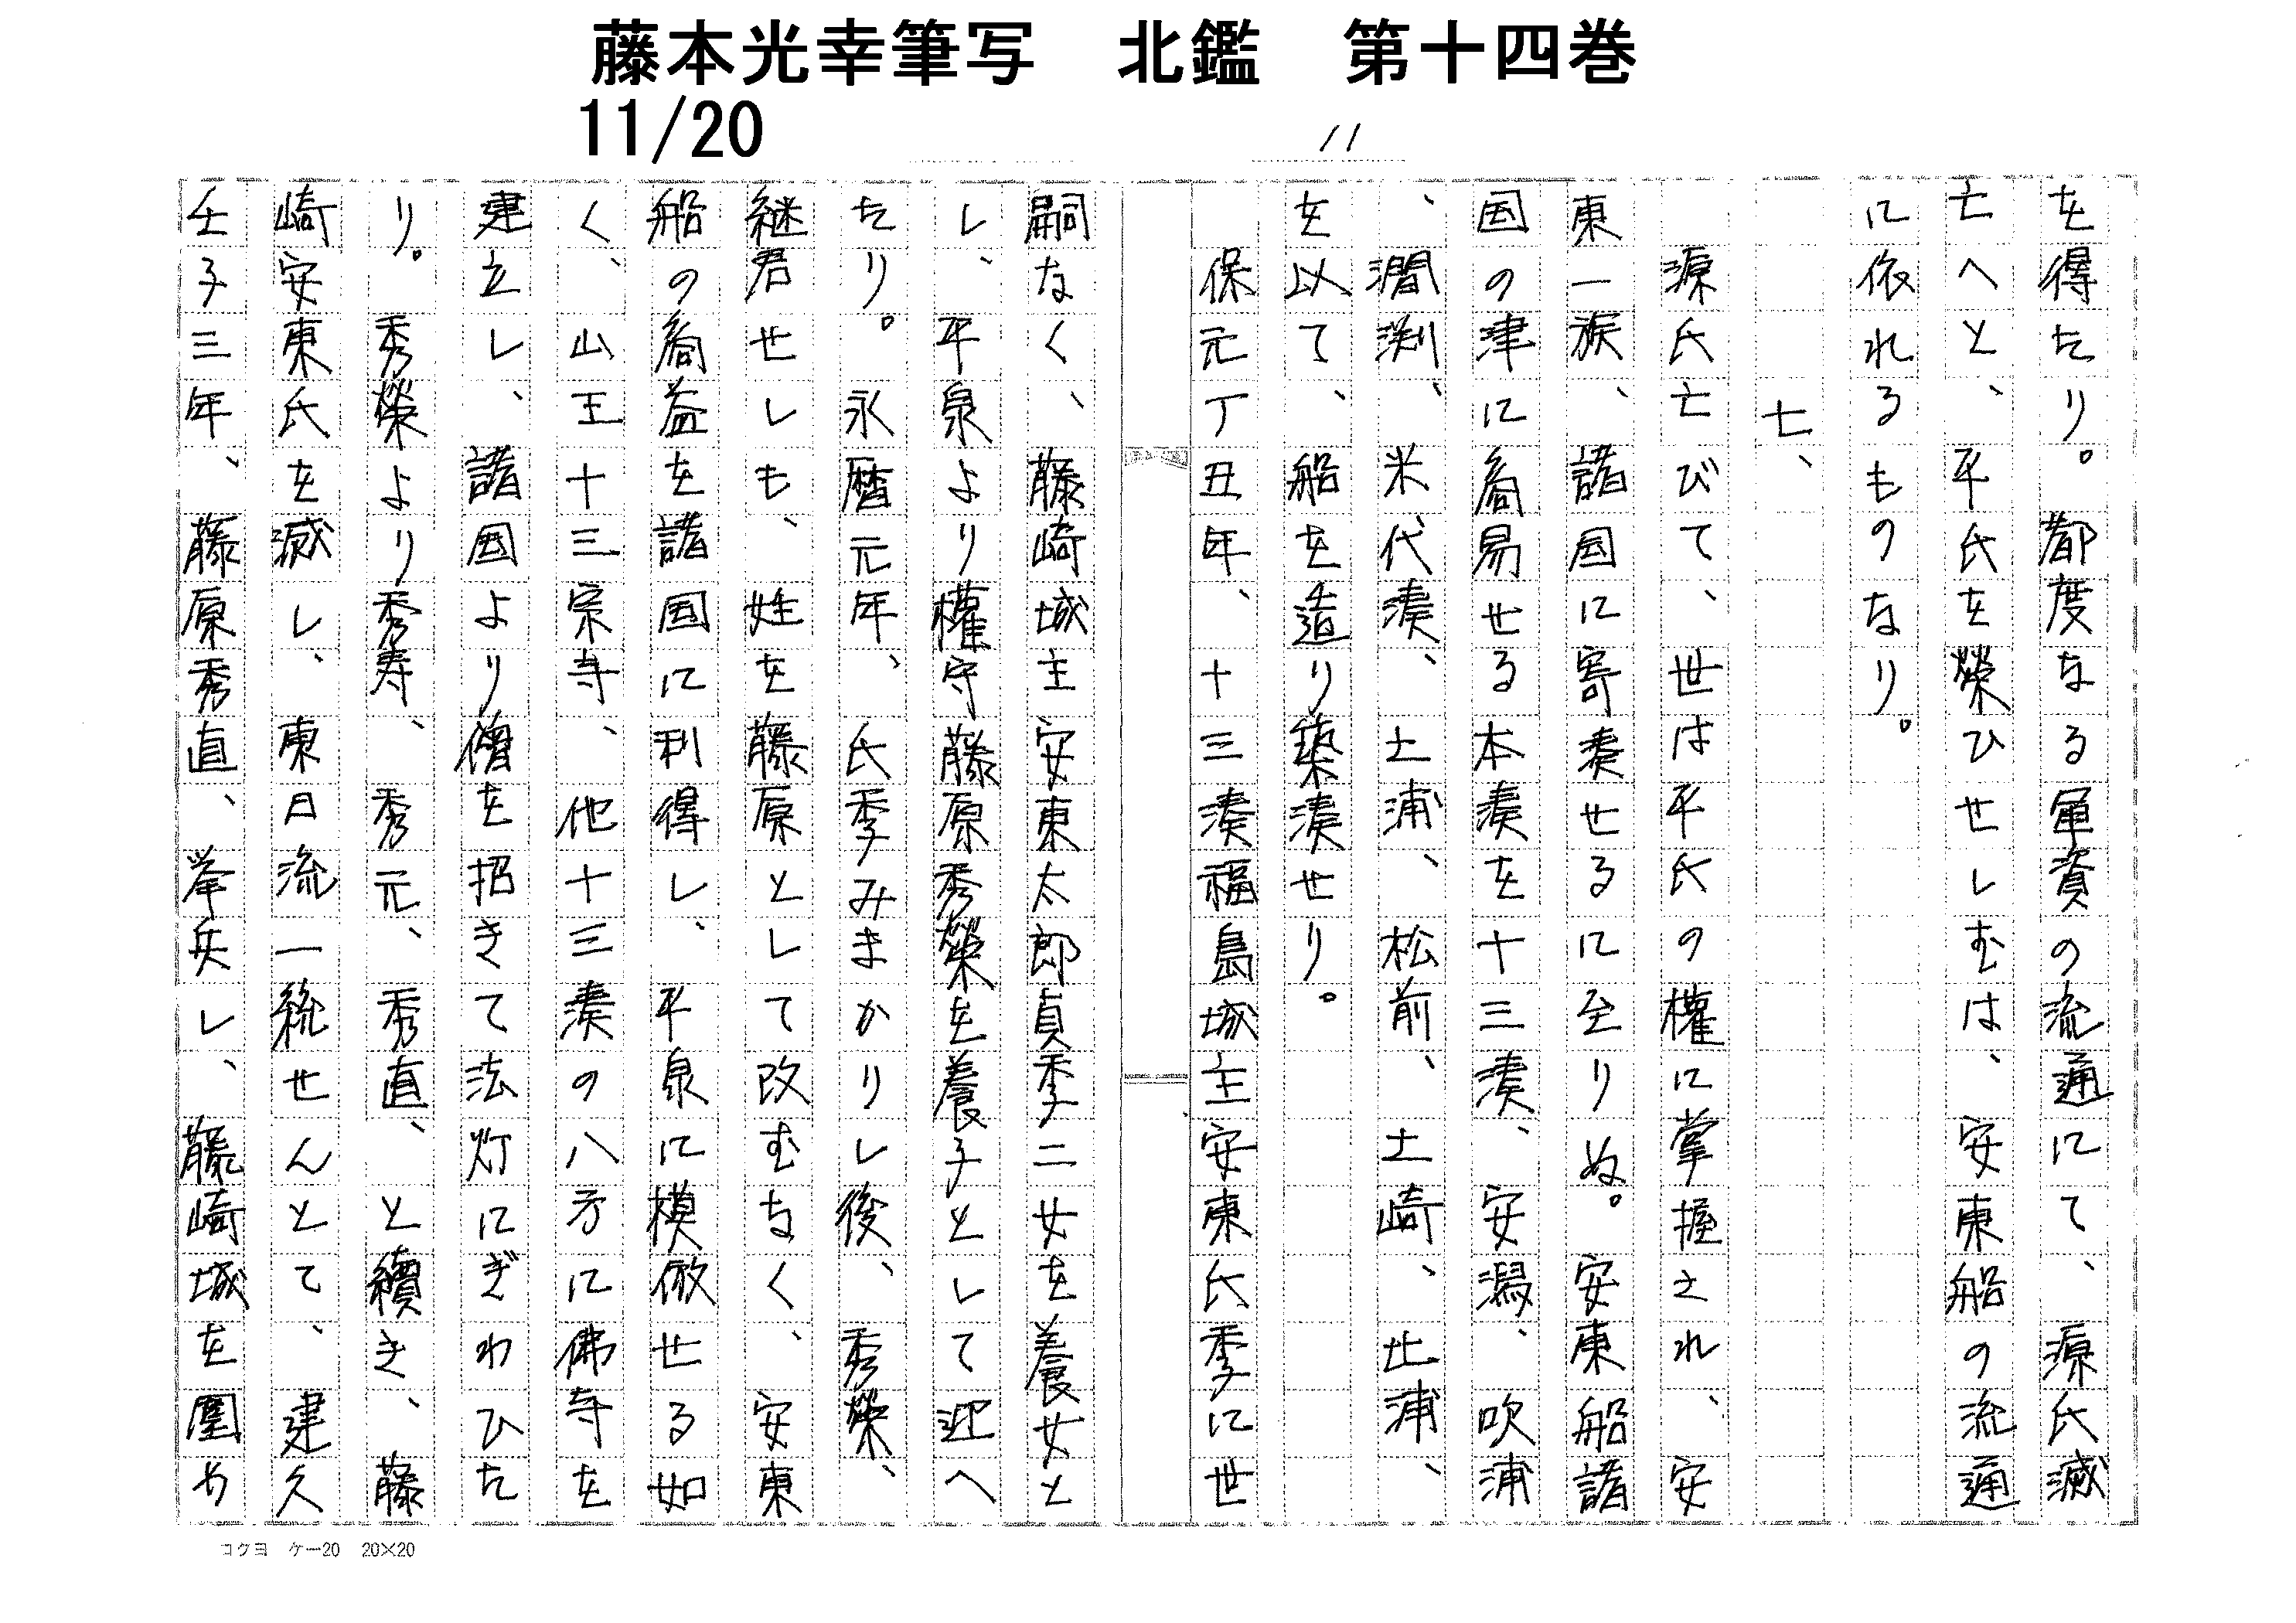 藤本光幸筆写　北鑑　第十四巻
11/20
11
を得たり。都度なる軍資の流通にて、源氏滅
亡へと、平氏を榮ひせしむは、安東船の流通
に依れるものなり。
七、
源氏亡びて、世は平氏の權に掌握され、安
東一族、諸国に寄湊せるに至りぬ。安東船諸
国の津に商易せる本湊を十三湊、安潟、吹浦
、澗渕、米代湊、土浦、松前、土崎、辻浦、
を以て、船を造り築湊せり。
保元丁丑年、十三湊福島城主安東氏季に世
嗣なく、藤崎城主安東太郎貞季二女を養女と
し、平泉より權守藤原秀榮を養子として迎へ
たり。永暦元年、氏季みまかりし後、秀榮、
継君せしも、姓を藤原として改むなく、安東
船の商益を諸国に利得し、平泉に模倣せる如
く、山王十三宗寺、他十三湊の八方に佛寺を
建立し、諸国より僧を招きて法灯にぎわひた
り。秀榮より秀寿、秀元、秀直、と續き、藤
崎安東氏を滅し、東日流一統せんとて、建久
壬子三年、藤原秀直、挙兵し、藤崎城を圍や
コクヨ　ケー20　20×20